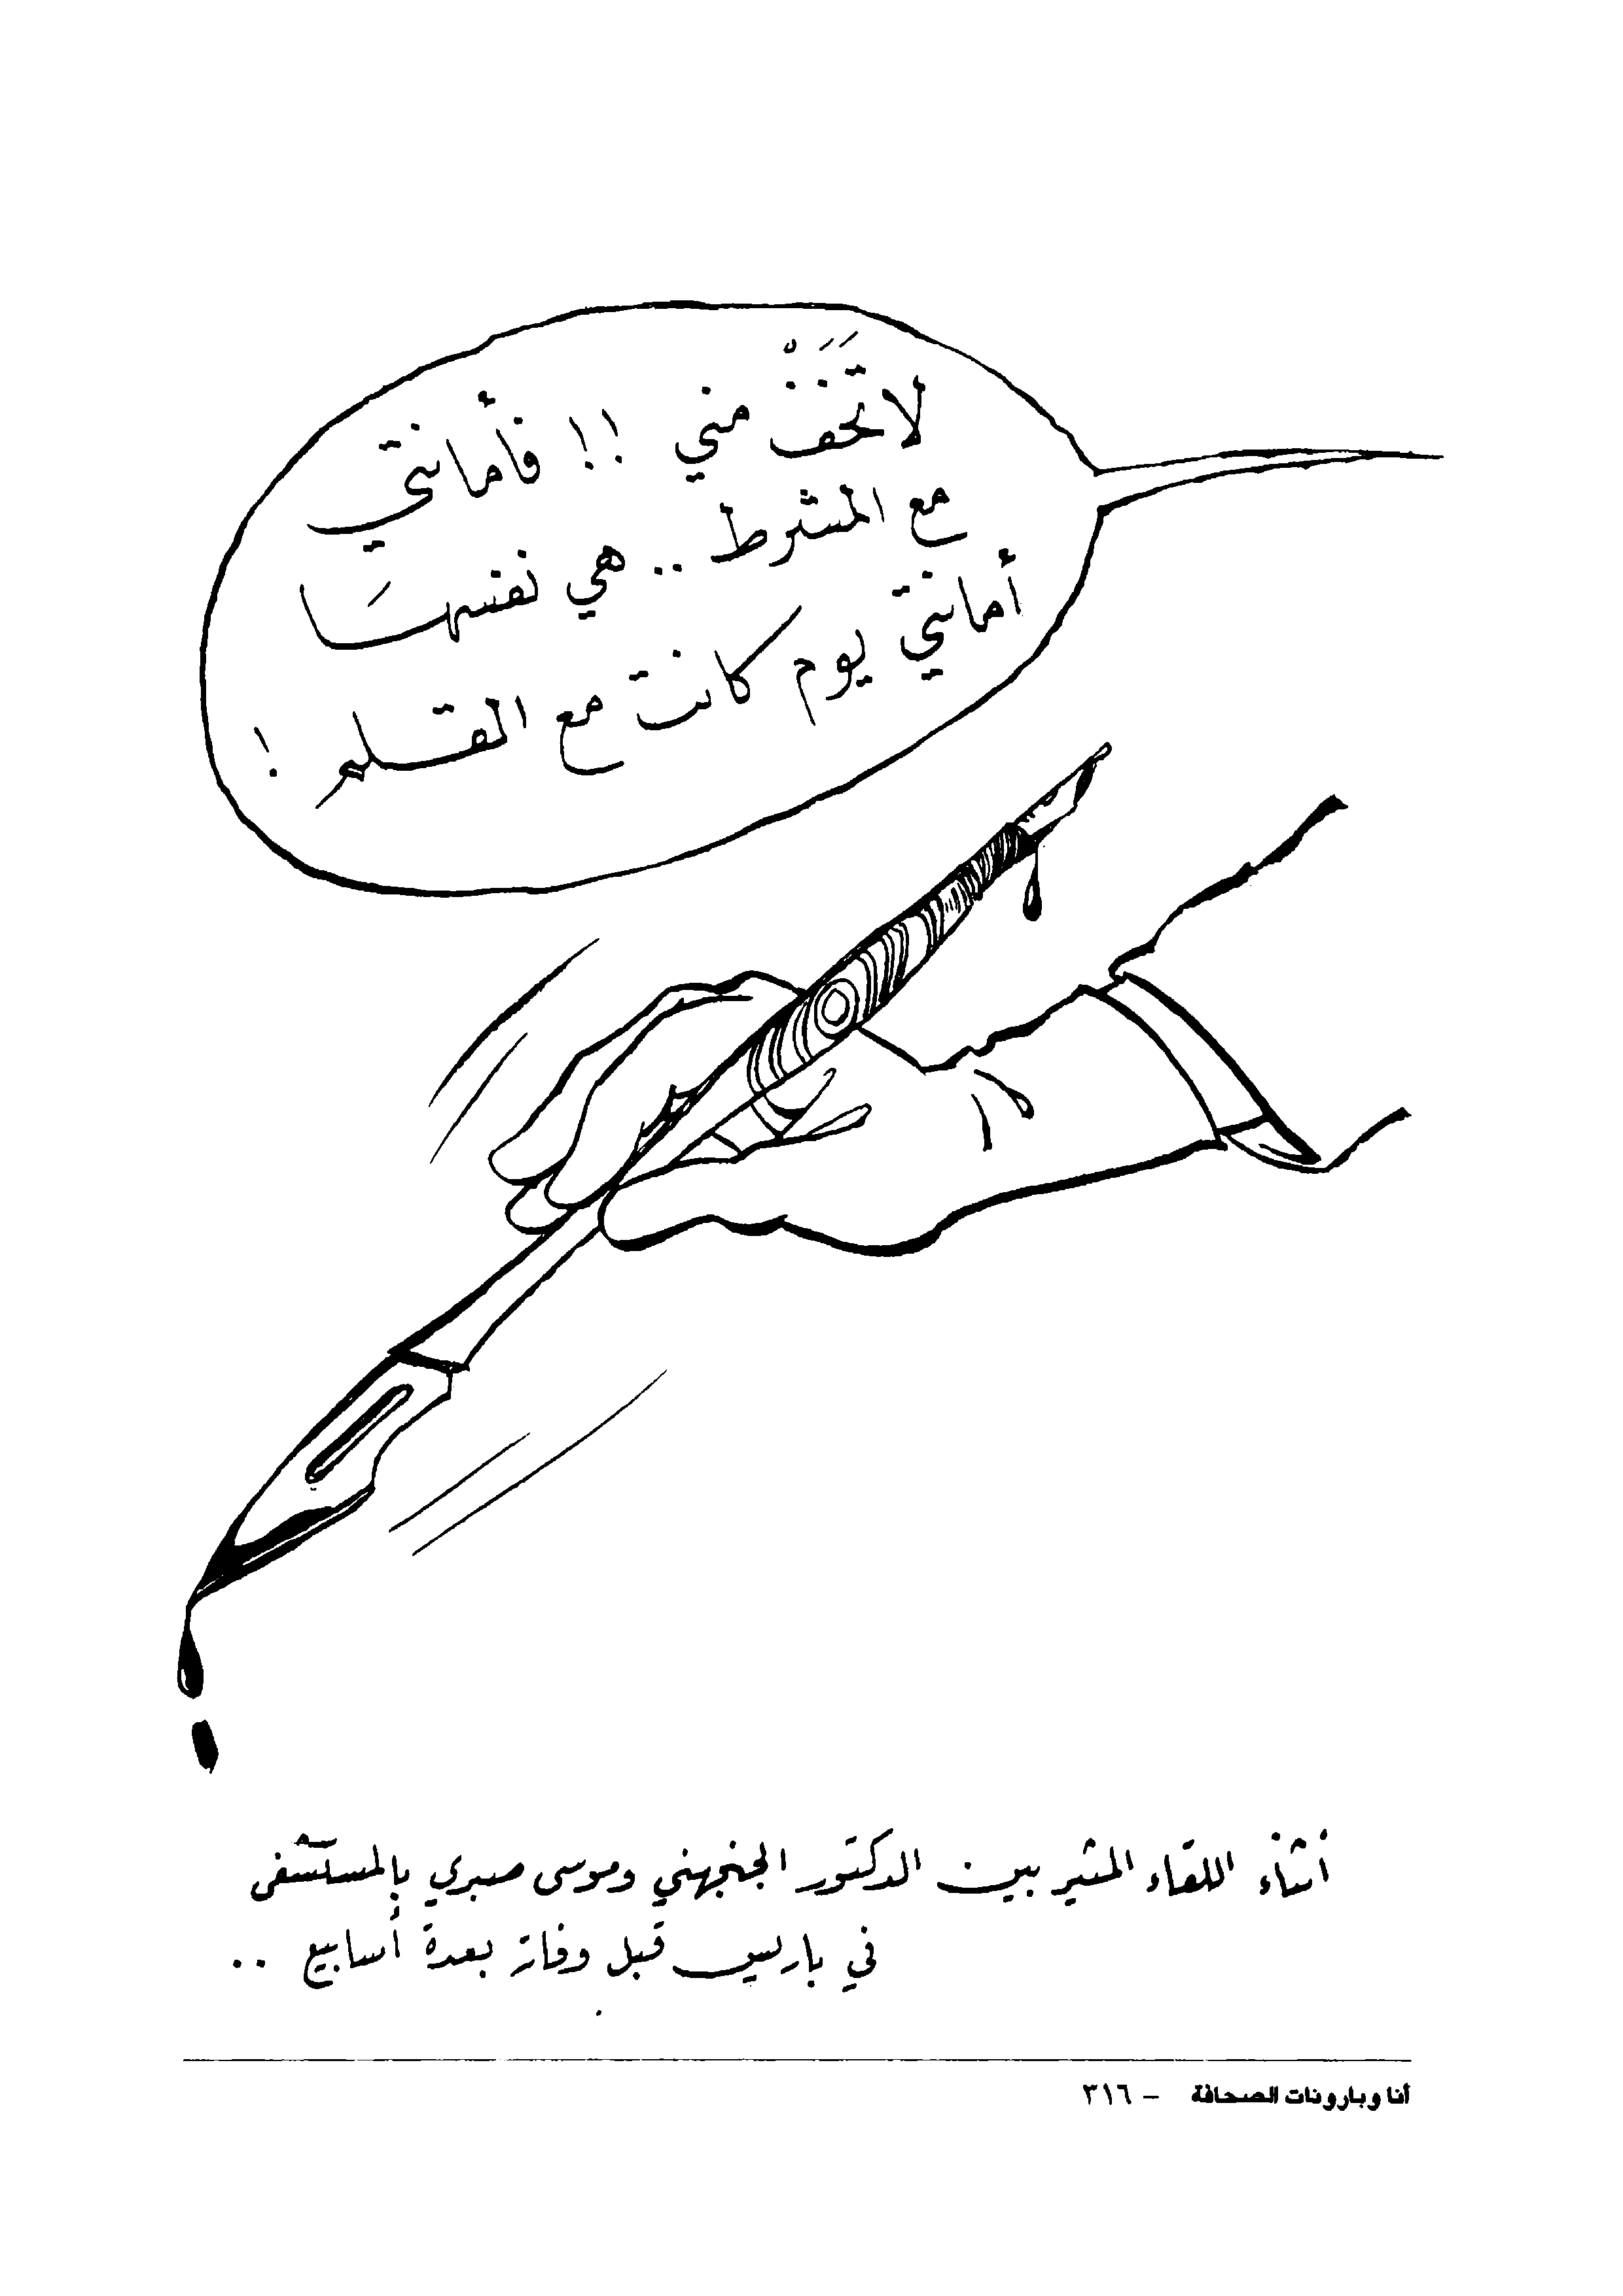 لا تَخَفْ مني !! فأمانتي
مع المشرط .. هي نفسهَا
أمانتي يوم كانت مع القلم !
أثناء اللقاء المثير بين الدكتور الجنجهني وموسى صبري بالمستشفى
في باريس قبل وفاته بعدة أسابيع ..
أنا وبارونات الصحافة - ٣١٦